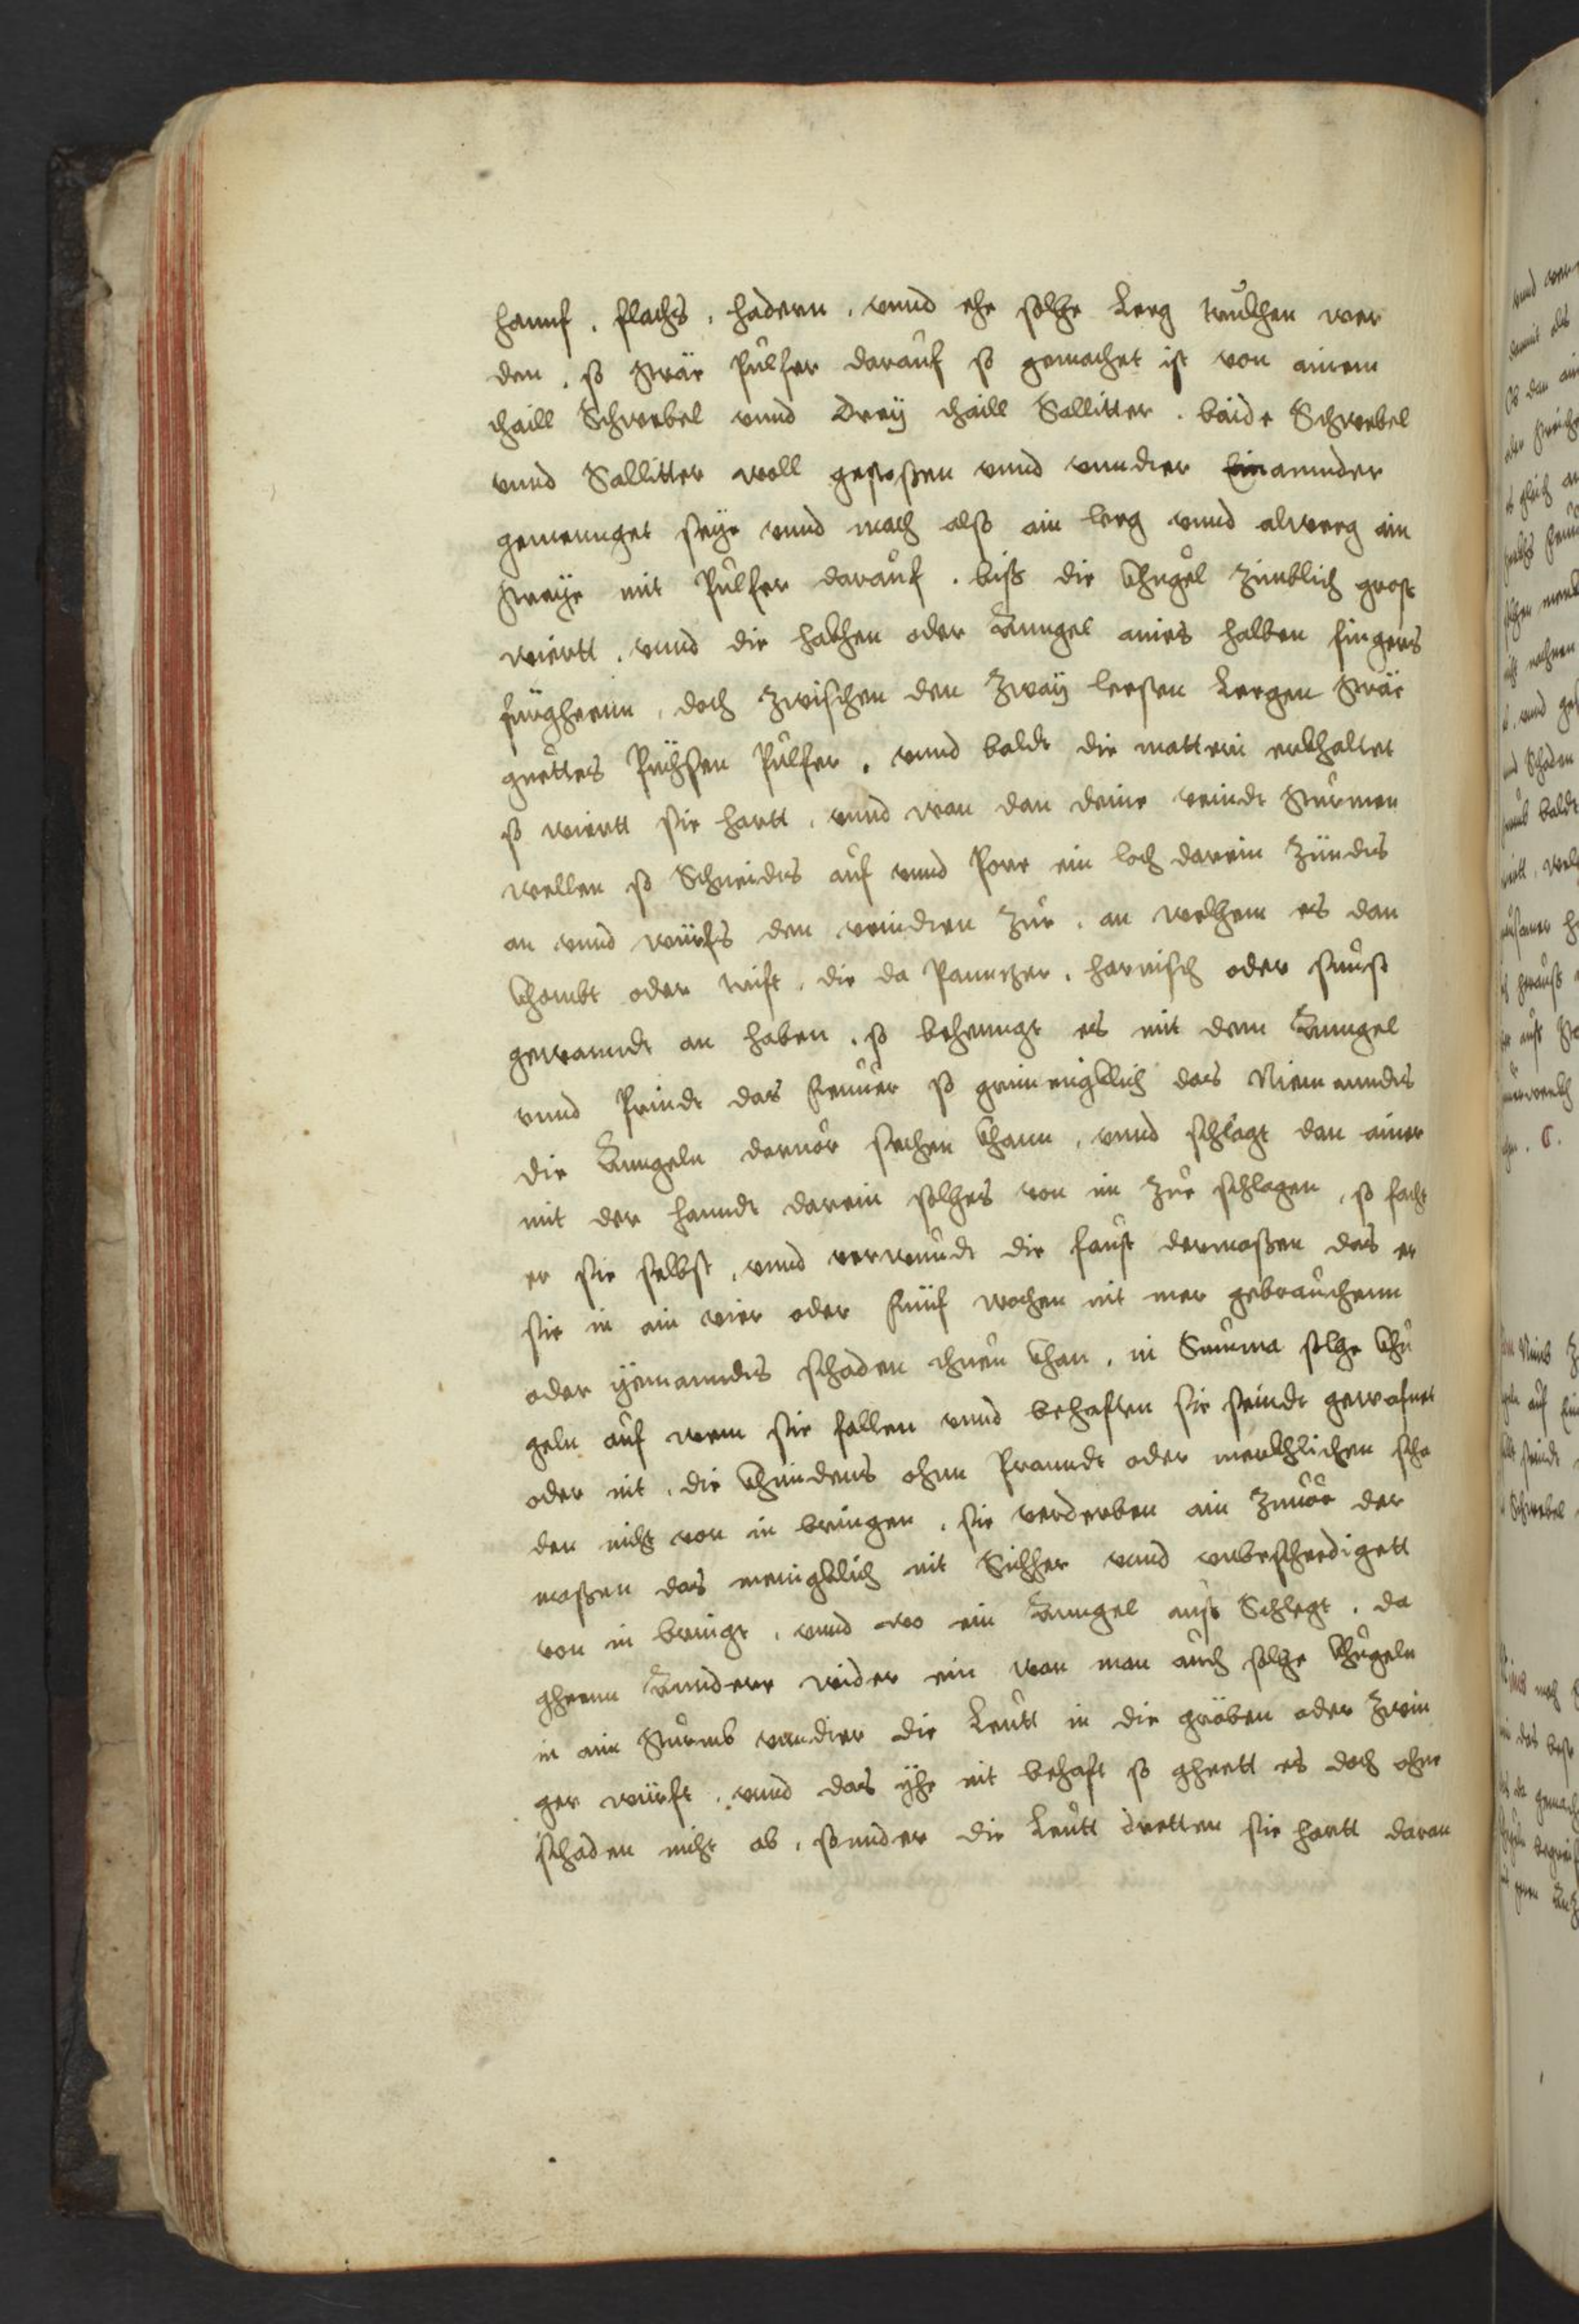 hannf, flachs, hadern, vnnd ehe solhe Leeg trukhen wer
den, so Sträe Pulfer darauf so gemachet ist von ainem
thaill Schwebel vnnd Dreӱ thaill Sallitter. baide Schwebel
vnnd Sallitter woll gestossen vnnd vnnder Einannder
gemennget seӱe vnnd mach also ain leeg vnnd alweeg ain
Streӱe mit Pulfer darauf. biss die khugel zimblich gross
wiertt, vnnd die hakhen oder Anngel aines halben fingers
fürgheenn, doch zwischen den zwaӱ lessten Leegen Sträe
guettes Püchssen Pulfer. vnnd baldt die matteri erkhaltet
so wiertt sie hartt, vnnd wan dan deine veindt Sturmen
wellen so Schneidts auf vnnd Pore ein loch darein zündts
an vnnd würfs den veindten zue, an welhem es dan
khombt oder trift, die da Pannzer, harnisch oder sunst
gewanndt an haben, so behenngt es mit dem Anngel
vnnd Prindt das Feuuer so grimmigklich das Niemanndts
die Anngeln deruor sechen khann, vnnd schlagt dan ainer
mit der hanndt darein solhes von im zue schlagen, so facht
er sie selbst, vnnd verwundt die faust dermassen das er
sie in ain vier oder Fünf wochen nit mer gebrauchenn
oder ӱemanndts schaden thuen khan, in Summa solhe khu
geln auf wem sie fallen vnnd behaften sie seindt gewafnet
oder nit, die khündens ohnn Pranndt oder merkhlichen scha
den nicht von in bringen, sie verderben ain zuuor der
massen das menigklich nit Sichher vnnd vnbeschedigett
von in bringt, vnnd wo ein Anngel auss Schlegt, da
gheenn Anndere wider ein wan man auch solhe khugeln
in ain Sturmb vnndter die Leutt in die gräben oder Zwin
ger würft, vnnd das ӱhe nit behaft so gheett es doch ohne
schaden nicht ab, sonnder die Leutt tretten sie hartt daran